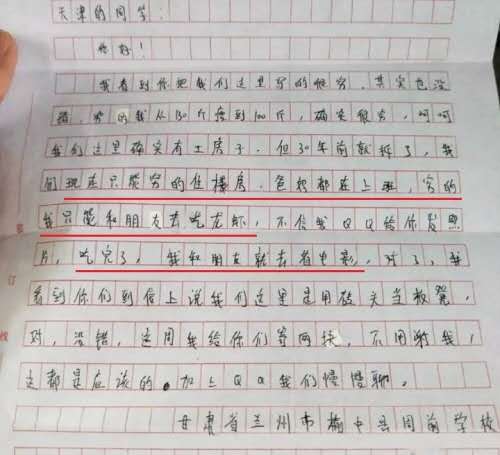 天津的同学:
你好!
我看到你把我们这里写的很穷,其实也没
错,穷的我从130斤瘦到100斤,确实很穷,呵呵
我们这里确实有土房子,但30年前就拆了,我
们现在只能穷的住楼房,爸妈都在上班,穷的
我只能和朋友去吃龙虾,不信我QQ给你发照
片,吃完了,我和朋友就去看电影,对了,我
看到你们到信上说我们这里是用砖头当板凳,
对,没错,这周我给你们寄两块,不用谢我,
这都是应该的。加上QQ我们慢慢聊。
甘肃省兰州市榆中县周前学校
订